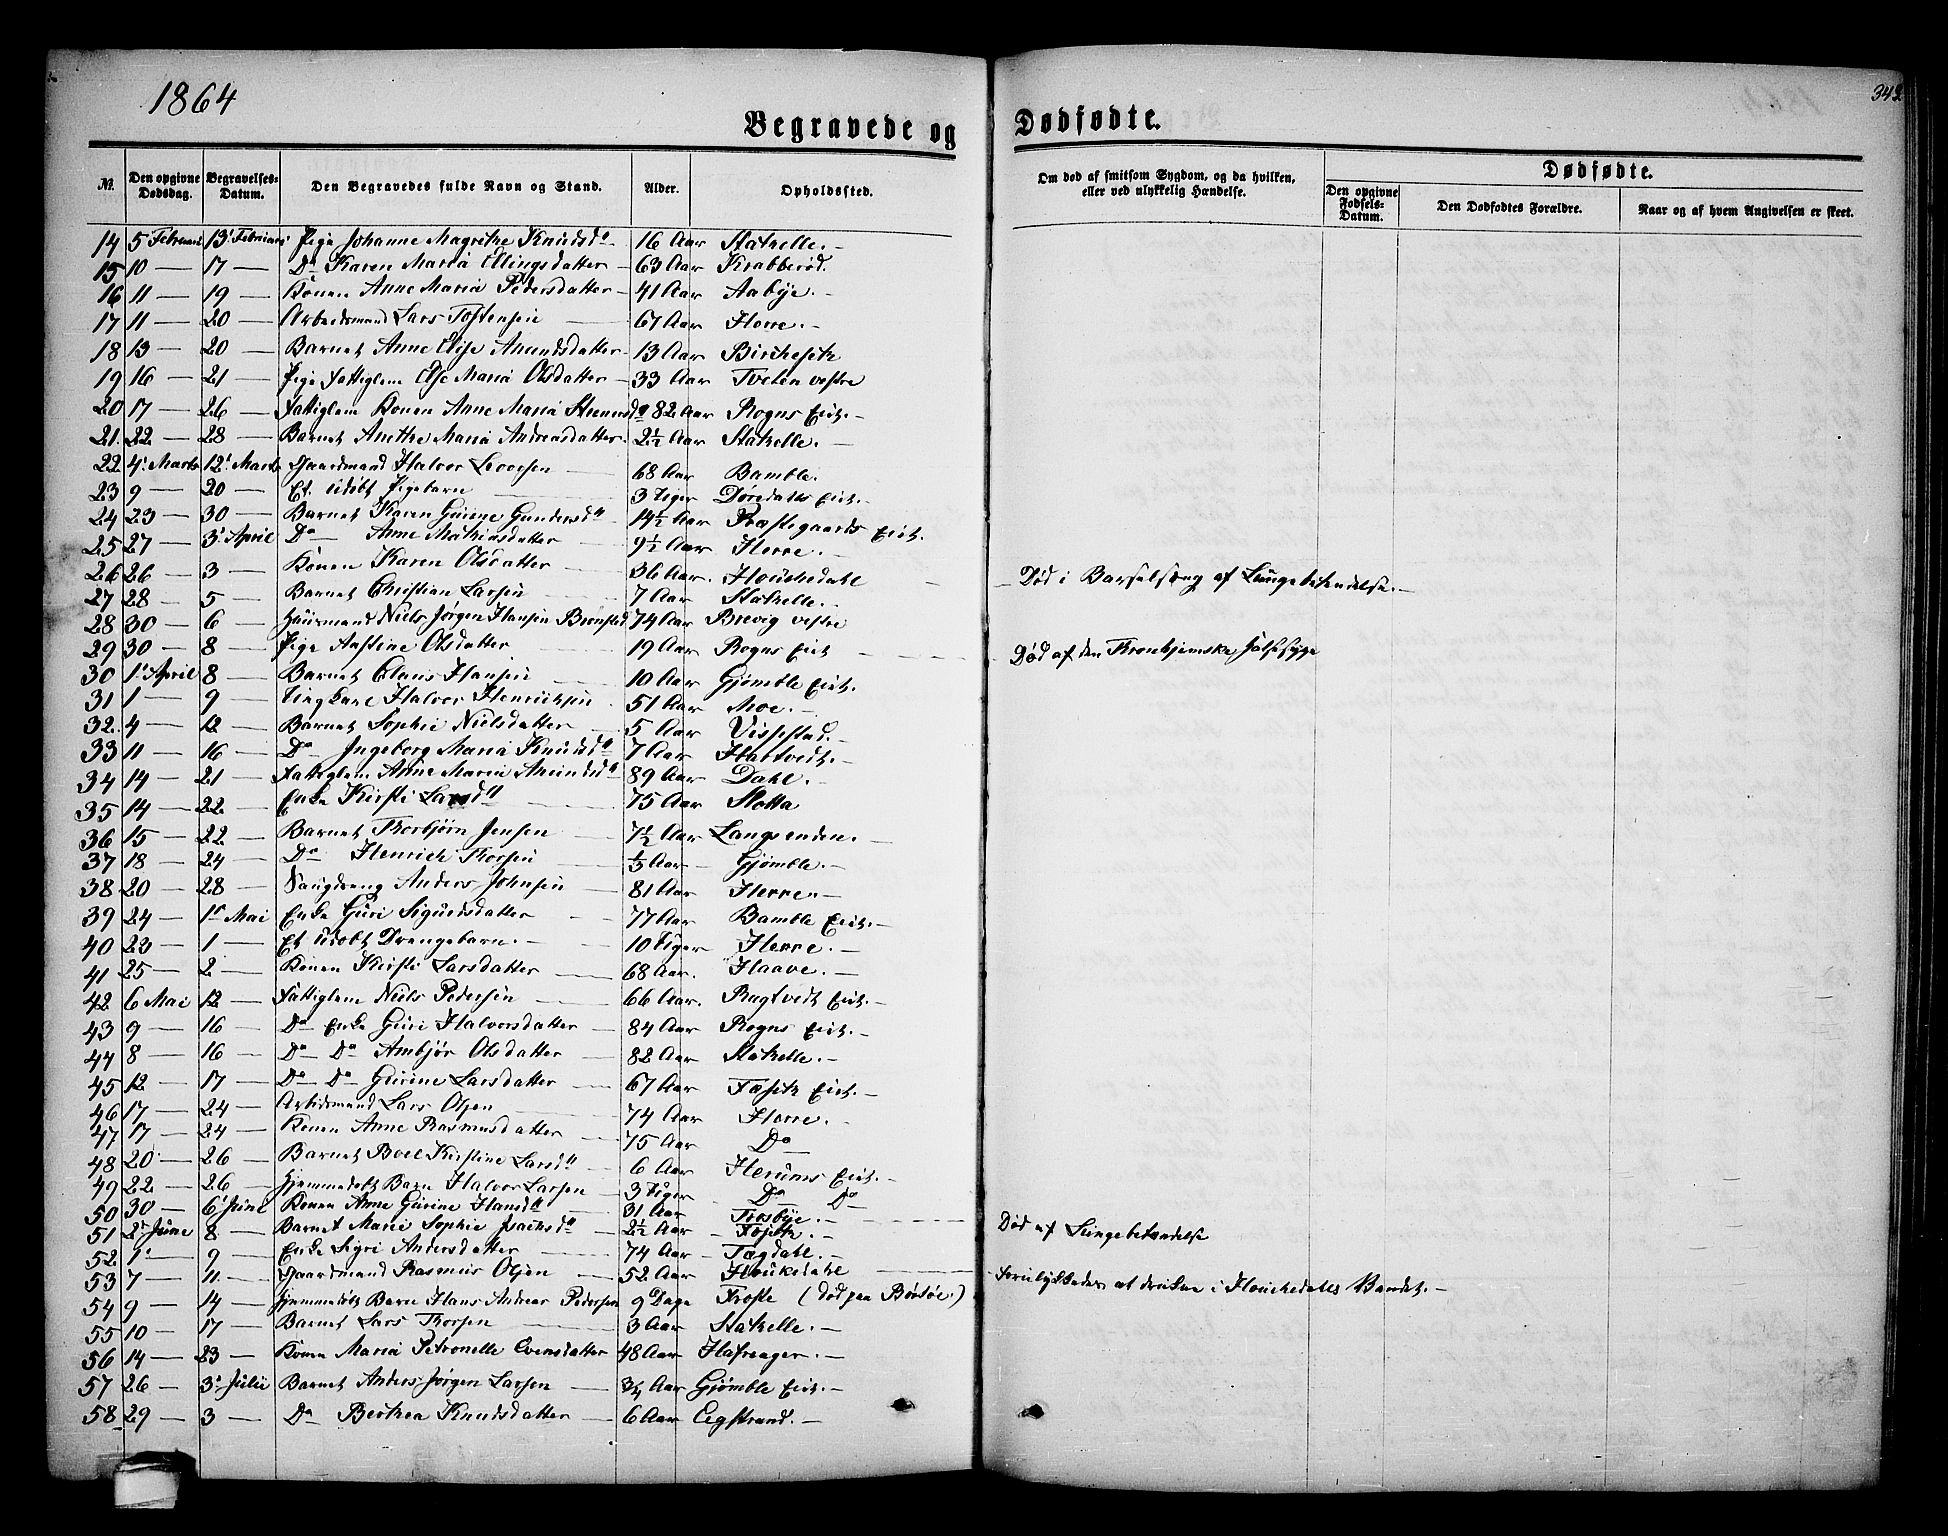 1864
342
Begravede og Dødfødte.
No. Den opgivne Dødsdag. Begravelses-Datum. Den Begravedes fulde Navn og Stand. Alder. Opholdssted. Om død af smitsom Sygdom, og da hvilken, eller ved ulykkelig Hændelse. Dødfødte. Den opgivne Fødsels-Datum. Den Dødfødtes Forældre. Naar og af hvem Angivelsen er skeet.
14 5 Februari 13 Februari Pige Johanne Magrethe Knudsd. 16 Aar Stathelle.
15 10 — 17 — Do Karen Maria Ellingsdatter 63 Aar Krabberød.
16 11 — 19 — Konen Anne Maria Pedersdatter 41 Aar Aabye.
17 11 — 20 — Arbeidsmand Lars Tostensen 67 Aar Herre.
18 13 — 20 — Barnet Anne Elise Amundsdatter 13 Aar
19 16 — 21 — Pige Fattiglem Else Maria Olsdatter 33 Aar Tveten vestre
20 17 — 26 — Fattiglem Konen Anne Maria 82 Aar Rogns Eie.
21 22 — 28 — Barnet Anethe Maria Andreasdatter 2½ Aar Stathelle.
22 4 Marts 12 Marts Gaardmand Halvor Leversen 68 Aar Bamble.
23 9 — 20 — Et Udøbt Pigebarn 3 Uger Dørdalls Eie.
24 23 — 30 — Barnet Karen Gurine Gundersd. 14½ Aar Præstegaards Eie.
25 27 — 3 April Do Anne Mathiasdatter 9½ Aar Herre.
26 26 — 3 — Konen Karen Olsdatter 36 Aar. Houkedahl — Død i Barselseng af Lungebetendelse.
27 28 — 5 — Barnet Christian Larsen 7 Aar Stathelle.
28 30 — 6 — Huusmand Niels Jørgen Hansen Brønsted 74 Aar Brevig vestre
29 30 — 8 — Pige Aastine Olsdatter 19 Aar Rogns Eie — Død af den Tronhjemske Halssyge
30 1 April 8 — Barnet Claus Hansen 10 Aar Gjømble Eie.
31 1 — 9 — Ungkarl Halvor Henriksen 51 Aar Moe.
32 4 — 12 — Barnet Sophie Nielsdatter 5 Aar Vissestad.
33 11 — 16 — Do Ingeborg Maria Knudsd. 7 Aar Hartvedt.
34 14 — 21 — Fattiglem Anne Maria Amundsd. 89 Aar Dahl.
35 14 — 22 — Enke Kirsti Larsd. 75 Aar Slotta
36 15 — 22 — Barnet Thorbjørn Jensen 7½ Aar Langsenden.
37 18 — 24 — Do Henrich Thorsen ⅓ Aar Gjømble.
38 20 — 28 — Anders Johnsen 81 Aar Herre
39 24 — 1 Mai Enke Guri Sigurdsdatter 77 Aar Bamble Eie.
40 23 — 1 — Et Udøbt Drengebarn. 10 Uger Herre.
41 25 — 2 — Konen Kirsti Larsdatter 68 Aar. Haave.
42 6 Mai 12 — Fattiglem Niels Pedersen 66 Aar. Ragtvedt Eie.
43 9 — 16 — Do Enke Guri Halvorsdatter 84 Aar Rogns Eie.
44 8 — 16 — Do Do Ambjør Olsdatter 82 Aar Stathelle.
45 12 — 17 — Do Do Gurine Larsdatter 67 Aar Eie.
46 17 — 24 — Arbidsmand Lars Olsen 74 Aar Herre.
47 17 — 24 — Konen Anne Rasmusdatter 75 Aar Do
48 20 — 26 — Barnet Boel Kirstine Larsd. 6 Aar Herums Eie.
49 22 — 26 — Hjemmedøbt Barn Halvor Larsen 3 Uger Do Do
50 30 — 6 Juni Konen Anne Gurine Hansd. 31 Aar Trosbye. — Død af Lungebetændelse
51 2 June 8 — Barnet Marie Sophie Isachsd. 2½ Aar
52 1 9 — Enke Sigri Andersdatter 74 Aar Tegdahl.
53 7 — 11 — Gaardmand Rasmus Olsen 52 Aar Houkedahl — Forulykkedes at drukne i Houkedahls Vandet.
54 9 — 14 — Hjemmedøbt Barn Hans Andreas Pedersen 9 Dage Froste (død paa)
55 10 — 17 — Barnet Lars Thorsen 3 Aar Stathelle.
56 14 — 23 — Konen Maria Petronelle Evensdatter 48 Aar Hafsager.
57 26 — 3 Julii Barnet Anders Jørgen Larsen ¾ Aar Gjømble Eie.
58 29 — 3 — Do Berthea Knudsdatter 6 Aar Eegstrand.